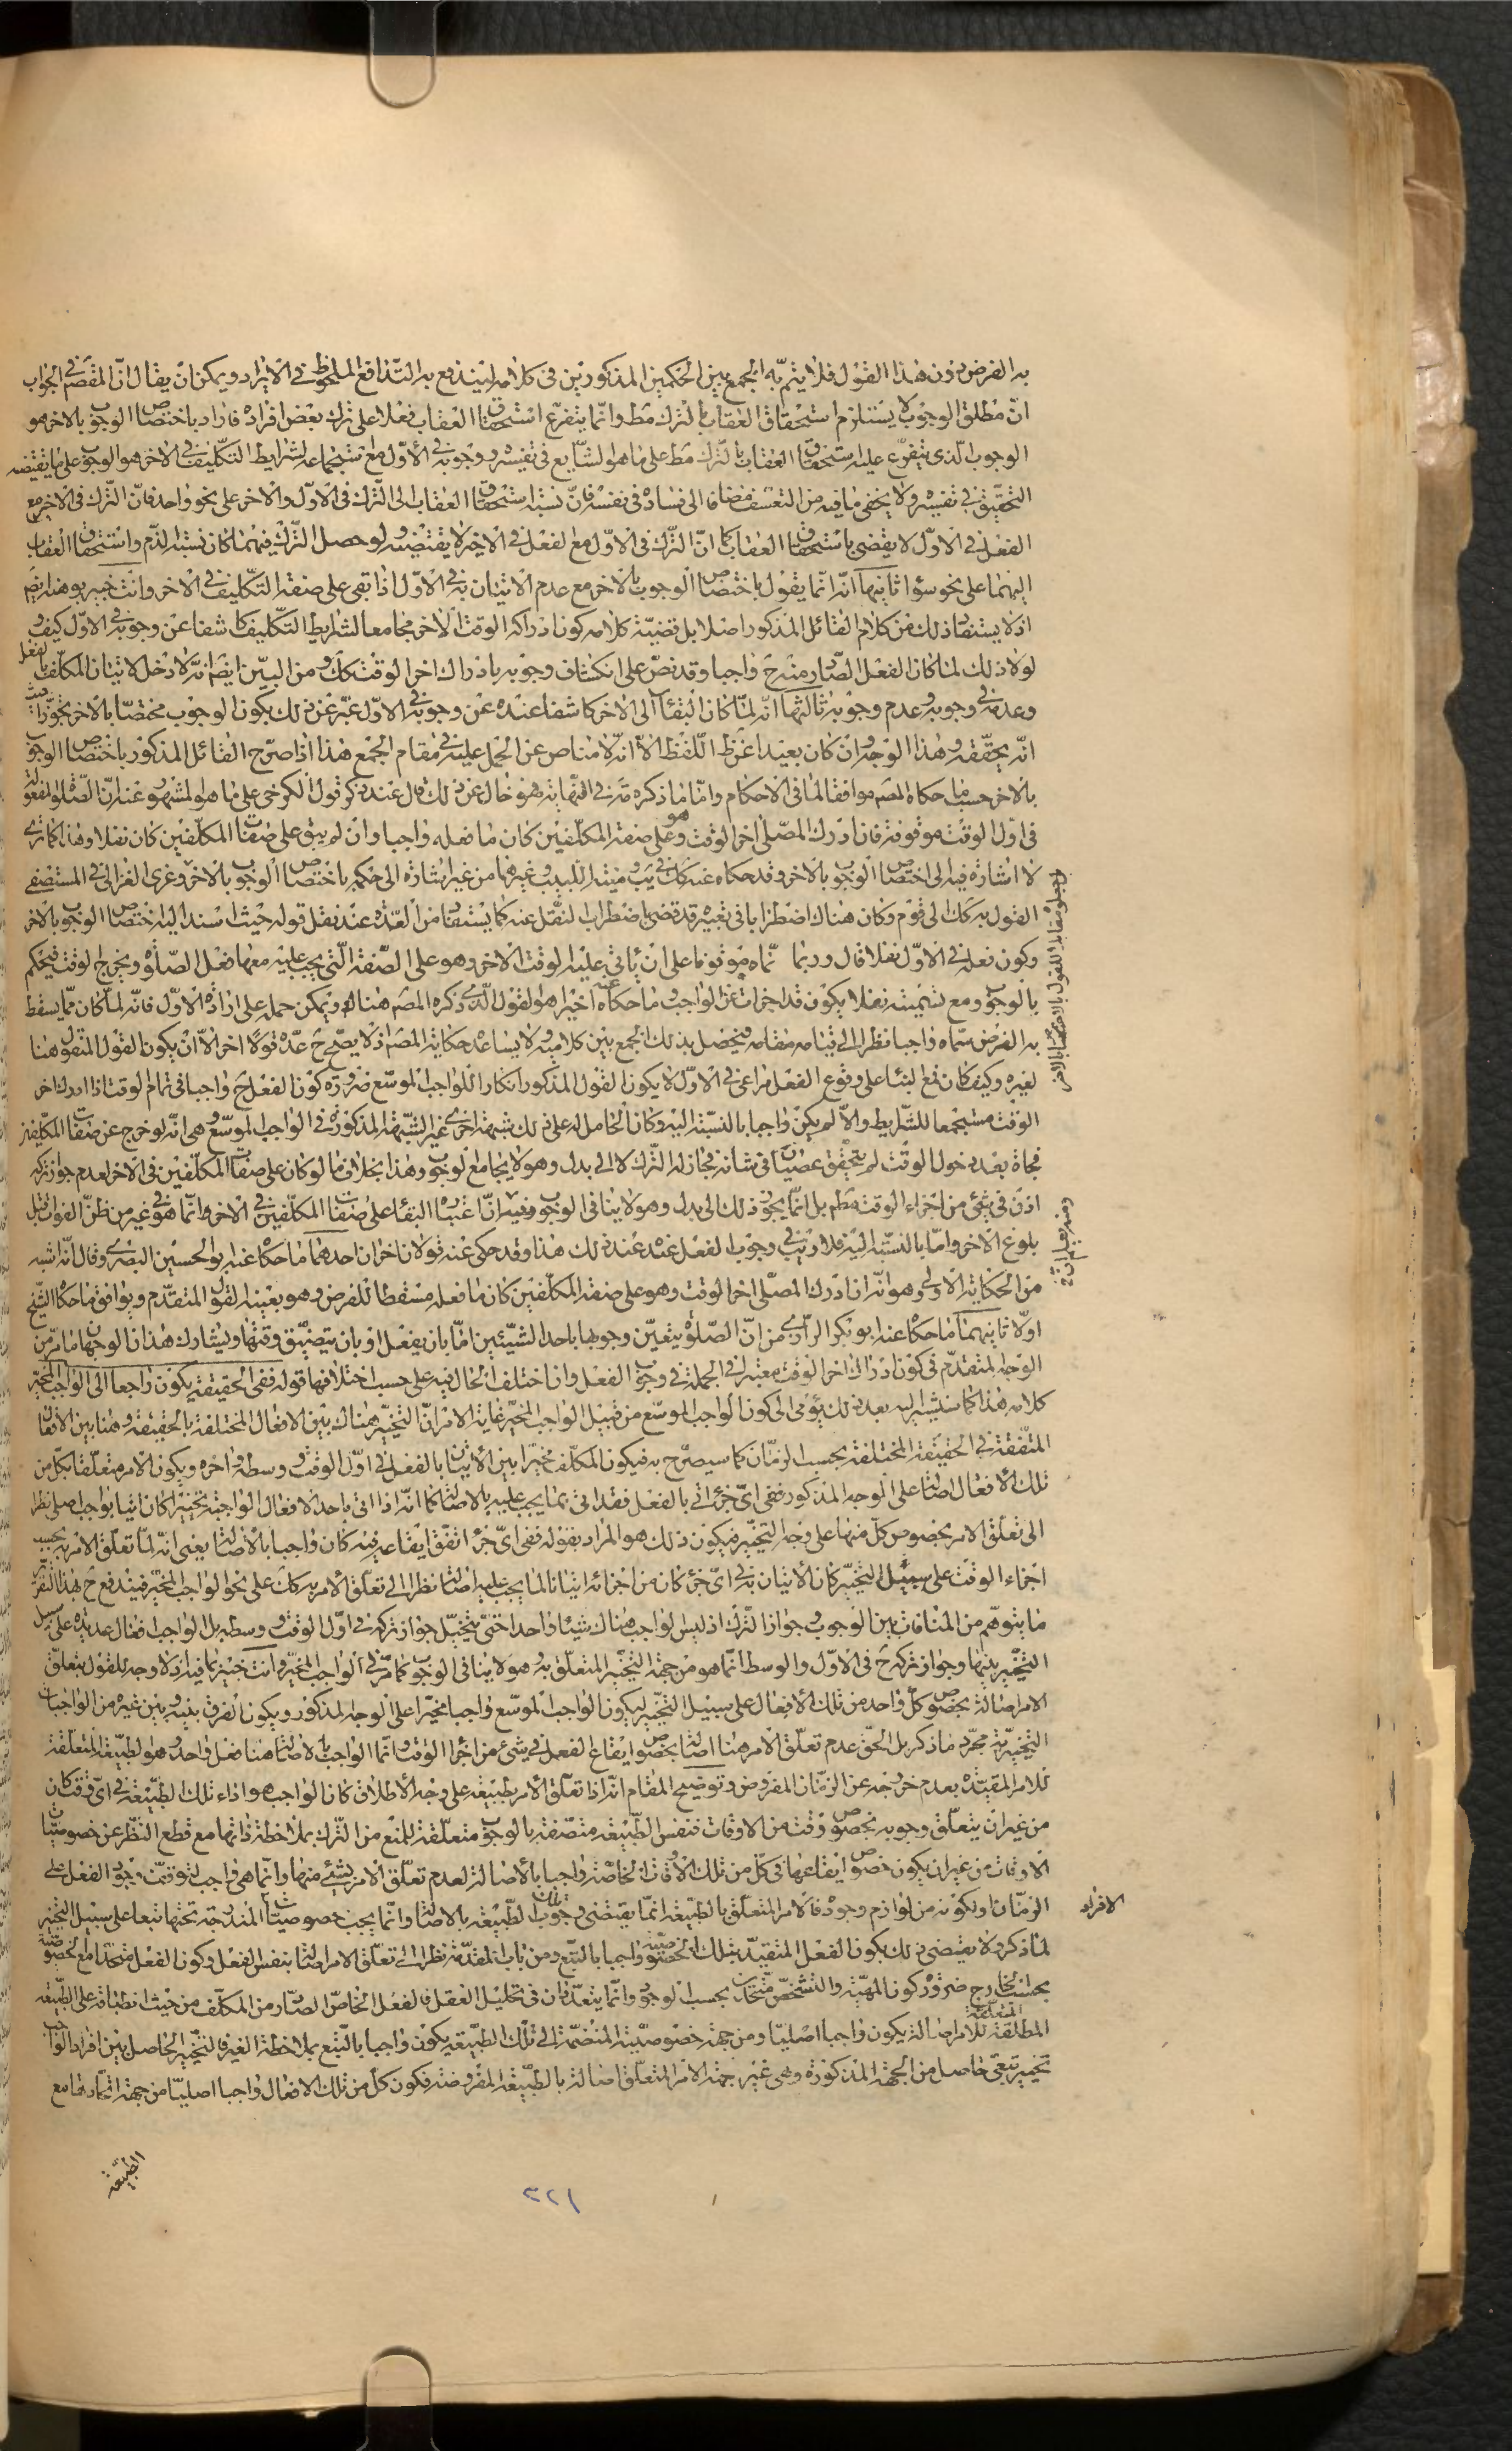 به الفرض دون هذا القول فلا يتم به الجمع بين الحكمين المذكورين فى كلامه ليندفع به التدافع الملحوظ في الايراد ويمكن ان يقال ان المقصّ في الجواب
انّ مطلق الوجوب لا يستلزم استحقاق العقاب بالترك مط وانّما يتفرع استحقاق العقاب فعلا على ترك بعض افراده فاراد باختصاص الوجوب بالاخر هو
الوجوب الّذى يتفرّع عليه استحقاق العقاب بالترك مط على ما هو الشايع فى تفسيره ووجوبه في الأول مع استجماعه لشرايط التكليف في الاخر هو الوجوب على ما يقتضيه
التحقيق في تفسيره ولا يخفى ما فيه من التعسف مضافا الى فساده فى نفسه فانّ نسبة استحقاق العقاب الى الترك فى الاول والاخر على نحو واحد فانّ الترك فى الاخر مع
الفعل في الاوّل لا يقضى باستحقاق العقاب كما انّ الترك فى الاوّل مع الفعل في الاخر لا يقتضيه ولو حصل الترك فيهما كان نسبة الذم واستحقاق العقاب
اليهما على نحو سواء ثانيها انّه انّما يقول باختصاص الوجوب بالاخر مع عدم الاتيان به في الاوّل اذا بقى على صفة التكليف في الاخر وانت خبير بوهنه ايضا
اذ لا يستفاد ذلك من كلام القائل المذكور اصلا بل قضيّة كلامه كون ادراكه الوقت الاخر مجامعا لشرايط التكليف كاشفا عن وجوبه في الاوّل كيف و
لولا ذلك لما كان الفعل الصّادر منه ح واجبا وقد نصّ على انكشاف وجوبه بادراك اخر الوقت كك ومن البيّن ايضا انّه لا دخل لاتيان المكلّف بالفعل
وعدمه في وجوبه وعدم وجوبه ثالثها انّه لمّا كان البقاء الى الاخر كاشفا عنده عن وجوبه في الاوّل عبّر عن ذلك بكون الوجوب مختصّا بالاخر تجوّزا حيث
انّه يحقّقه وهذا الوجه وان كان بعيدا عن ظ اللّفظ الّا انّه لا مناص عن الحمل عليه في مقام الجمع هذا اذا صرّح القائل المذكور باختصاص الوجوب
بالاخر حسبما حكاه المصّ موافقا لما فى الاحكام وامّا ما ذكره في النهاية فهو خال عن ذلك قال عند ذكر قول الكرخى على ما هو المشهور عنه انّ الصّلوة المفعولة
فى اوّل الوقت موقوفة فان ادرك المصلّى اخر الوقت وهو على صفة المكلّفين كان ما فعله واجبا وان لم يبق على صفات المكلّفين كان نفلا وهذا كما ترى
لا اشارة فيه الى اختصاص الوجوب بالاخر وقد حكاه عنه كك في يب ومنية اللبيب وغيرهما من غير اشارة الى حكمه باختصاص الوجوب بالاخر وعزى الغزالى في المستصفى
القول به كك الى قوم وكان هناك اضطرابا فى تعبيره قد قضى باضطراب النقل عنه كما يستفاد من العدّة عند نقل قوله حيث اسند اليه اختصاص الوجوب بالاخر
وكون فعله في الاوّل نفلا قال وربما سمّاه موقوفا على ان يأتى عليه الوقت الاخر وهو على الصّفة الّتى يجب عليه معها فعل الصّلوة ويخرج الوقت فيحكم
بالوجوب ومع تسميته نفلا يكون قد اجزأت عن الواجب وما حكاه عنه اخيرا هو القول الّذى ذكره المصّ هنا ويمكن حمله على ارادة الاوّل فانّه لمّا كان ممّا يسقط
به الفرض سمّاه واجبا نظرا الى قيامه مقامه فيحصل بذلك الجمع بين كلاميه ولا يساعده حكاية المصّ اذ لا يصحّ ح عدّه قولا اخر الّا ان يكون القول المنقول هنا
لغيره وكيف كان فمع البناء على وقوع الفعل مراعى في الاوّل لا يكون القول المذكور انكارا للواجب الموسّع ضرورة كون الفعل ح واجبا فى تمام الوقت اذا ادرك اخر
الوقت مستجمعا للشّرايط والّا لم يكن واجبا بالنسبة اليه وكان الحامل له على ذلك شبهة اخرى غير الشبهة المذكورة في الواجب الموسّع وهى انّه لو خرج عن صفات المكلّفين
فجأة بعد دخول الوقت لم يتحقق عصيان فى شانه فجاز له الترك لا الى بدل وهو لا يجامع الوجوب وهذا بخلاف ما لو كان على صفات المكلّفين فى الاخر لعدم جواز تركه
اذن في شئ من اجزاء الوقت مط بل انّما يجوز ذلك الى بدل وهو لا ينافى الوجوب وفيه انّ اعتبار البقاء على صفات المكلّفين في الاخر انّما هو في غير من ظنّ الفوات قبل
بلوغ الاخر وامّا بالنسبة اليه فلا ريب في وجوب الفعل عنده عند ذلك هذا وقد حكى عنه قولان اخران احدهما ما حكاه عنه ابو الحسين البصرى وقال انّه اشبه
من الحكاية الاولى وهو انّه ان ادرك المصلّى اخر الوقت وهو على صفة المكلّفين كان ما فعله مسقطا للفرض وهو بعينه القول المتقدّم ويوافق ما حكاه الشيخ
اولا ثانيهما ما حكاه عنه ابو بكر الرازى من انّ الصّلوة يتعيّن وجوبها باحد الشيئين امّا بان يفعل او بان يتضيق وقتها ويشارك هذان الوجهان ما مرّ من
الوجه المتقدّم فى كون ادراك اخر الوقت معتبرا في الجملة في وجوب الفعل وان اختلف الحال فيه على حسب اختلافها قوله ففى الحقيقة يكون راجعا الى الواجب المخيّر
كلامه هذا كما سنشير اليه بعد ذلك يؤمى الى كون الواجب الموسّع من قبيل الواجب المخيّر غاية الامر انّ التخيير هناك بين الافعال المختلفة بالحقيقة وهنا بين الافعال
المتّفقة في الحقيقة المختلفة بحسب الزمان كما سيصرّح به فيكون المكلّف مخيّرا بين الأتيان بالفعل في اوّل الوقت ووسطه واخره ويكون الامر متعلّقا بكل من
تلك الأفعال اصالة على الوجه المذكور ففى اىّ جزء اتى بالفعل فقد اتى بما يجب عليه بالاصالة كما انّه اذا اتى باحد الافعال الواجبة تخييرا كان اتيا بواجب اصلى نظرا
الى تعلّق الامر بخصوص كلّ منها على وجه التخيير فيكون ذلك هو المراد بقوله ففى اىّ جزء اتفق ايقاعه فيه كان واجبا بالأصالة يعنى انّه لمّا تعلّق الامر به بحسب
اجزاء الوقت على سبيل التخيير كان الأتيان به في اىّ جزء كان من اجزائه اتيانا لما يجب عليه اصالة نظرا الى تعلّق الأمر به كك على نحو الواجب المخيّر فيندفع ح بهذا التقرير
ما يتوهّم من المنافات بين الوجوب وجواز الترك اذ ليس الواجب هناك شيئا واحدا حتى يتخيّل جواز تركه في اوّل الوقت ووسطه بل الواجب افعال عديدة على سبيل
التخيير بينها وجواز تركه ح فى الاوّل والوسط انّما هو من جهة التخيير المتعلّق به وهو لا ينافى الوجوب كما مرّ في الواجب المخيّر وانت خبير بما فيه اذ لا وجه للقول بتعلّق
الامر اصالة بخصوص كلّ واحد من تلك الأفعال على سبيل التخيير ليكون الواجب الموسّع واجبا مخيّرا على الوجه المذكور ويكون الفرق بينه وبين غيره من الواجبات
التخييريّة مجرّد ما ذكر بل الحقّ عدم تعلّق الأمر هنا اصالة بخصوص ايقاع الفعل في شئ من اجزاء الوقت وانّما الواجب بالاصالة هنا فعل واحد وهو الطبيعة المتعلّقة
للامر المقيّدة بعدم خروجه عن الزّمان المفروض وتوضيح المقام انّه اذا تعلّق الأمر بطبيعة على وجه الأطلاق كان الواجب هو اداء تلك الطبيعة في اىّ وقت كان
من غير ان يتعلّق وجوبه بخصوص وقت من الاوقات فنفس الطّبيعة متصّفة بالوجوب متعلّقة للمنع من الترك بملاحظة ذاتها مع قطع النظر عن خصوصيات
الاوقات من غير ان يكون خصوص ايقاعها فى كلّ من تلك الأوقات الخاصّة واجبا بالأصالة لعدم تعلّق الامر بشئ منها وانّما هى واجب لتوقّف وجود الفعل على
الزّمان او لكونه من لوازم وجوده فالامر المتعلّق بالطبيعة انّما يقتضى وجوب تلك الطبيعة بالاصالة وانّما يجب خصوصيات الافراد المندرجة تحتها تبعا على سبيل التخيير
لما ذكر ولا يقتضى ذلك بكون الفعل المتقيّد بتلك الخصوصية واجبا بالتبع ومن باب المقدّمة نظرا الى تعلّق الامر اصالة بنفس الفعل وكون الفعل متحدا مع الخصوصية
بحسب الخارج ضرورة كون المهيّة والتشخّص متّحدان بحسب الوجود وانّما يتعدّدان فى تحليل العقل فالفعل الخاصّ الصّادر من المكلّف من حيث انطباقه على الطبيعة
المطلقة المتعلّقة للامر اصالة يكون واجبا اصليّا ومن جهة خصوصيّته المنضمّة الى تلك الطبيعة يكون واجبا بالتّبع بملاحظة الغير فالتخيير الحاصل بين افراد الواجب
تخيير تبعى حاصل من الجهة المذكورة وهى غير جهة الامر المتعلّق اصالة بالطبيعة المفروضة فكون كلّ من تلك الافعال واجبا اصليّا من جهة اتحادها مع
الطبيعة
٣٢١